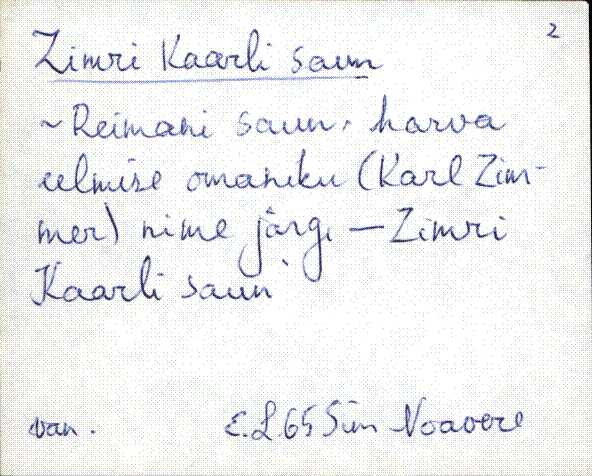 2
Zimri Kaarli saun
~ Reimani saun, harva
eelmise omaniku (Karl Zim-
mer) nime järgi — Zimri
Kaarli saun
van. E.L. 65 Sim Noavere